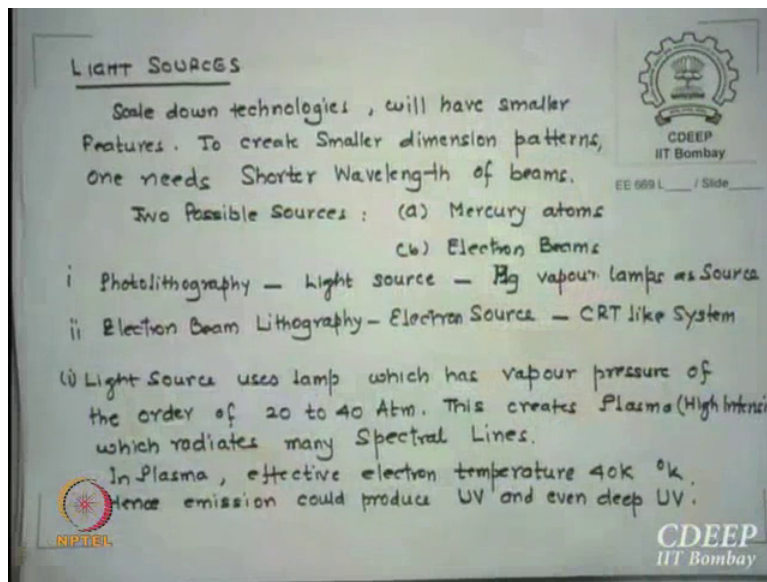 LIGHT SOURCES
Scale down technologies, will have smaller
Features. To create Smaller dimension patterns,
one needs Shorter Wavelength of beams.
Two Possible Sources : (a) Mercury atoms
(b) Electron Beams
i Photolithography — Light source — Hg vapour lamps as Source
ii Electron Beam Lithography - Electron Source - CRT like System
(i) Light Source uses lamp which has vapour pressure of
the order of 20 to 40 Atm. This creates Plasma (High Intensi
which radiates many Spectral Lines.
In Plasma, effective electron temperature 40k °k.
Hence emission could produce UV and even deep UV.
CDEEP
IIT Bombay
EE 669 L____ / Slide____
NPTEL
CDEEP
IIT Bombay